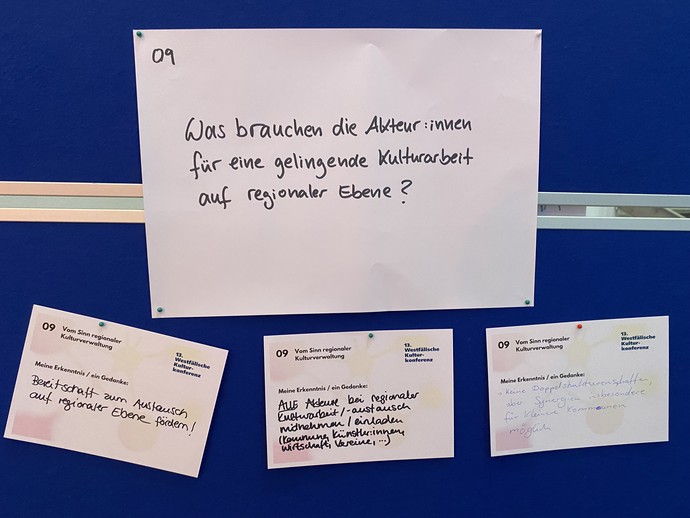 09
Was brauchen die Akteur:innen
für eine gelingende Kulturarbeit
auf regionaler Ebene?
09 Vom Sinn regionaler
Kulturverwaltung
13.
Westfälische
Kultur-
konferenz
Meine Erkenntnis / ein Gedanke:
Bereitschaft zum Austausch
auf regionaler Ebene fördern!
09 Vom Sinn regionaler
Kulturverwaltung
13.
Westfälische
Kultur-
konferenz
Meine Erkenntnis / ein Gedanke:
ALLE Akteure bei regionaler
Kulturarbeit/-austausch
mitnehmen / einladen
(Kommune, Künstler:innen,
Wirtschaft, Vereine, ...)
09 Vom Sinn regionaler
Kulturverwaltung
13.
Westfälische
Kultur-
konferenz
Meine Erkenntnis / ein Gedanke:
keine Doppelstrukturen schaffen,
aber Synergien insbesondere
für kleine Kommunen
möglich